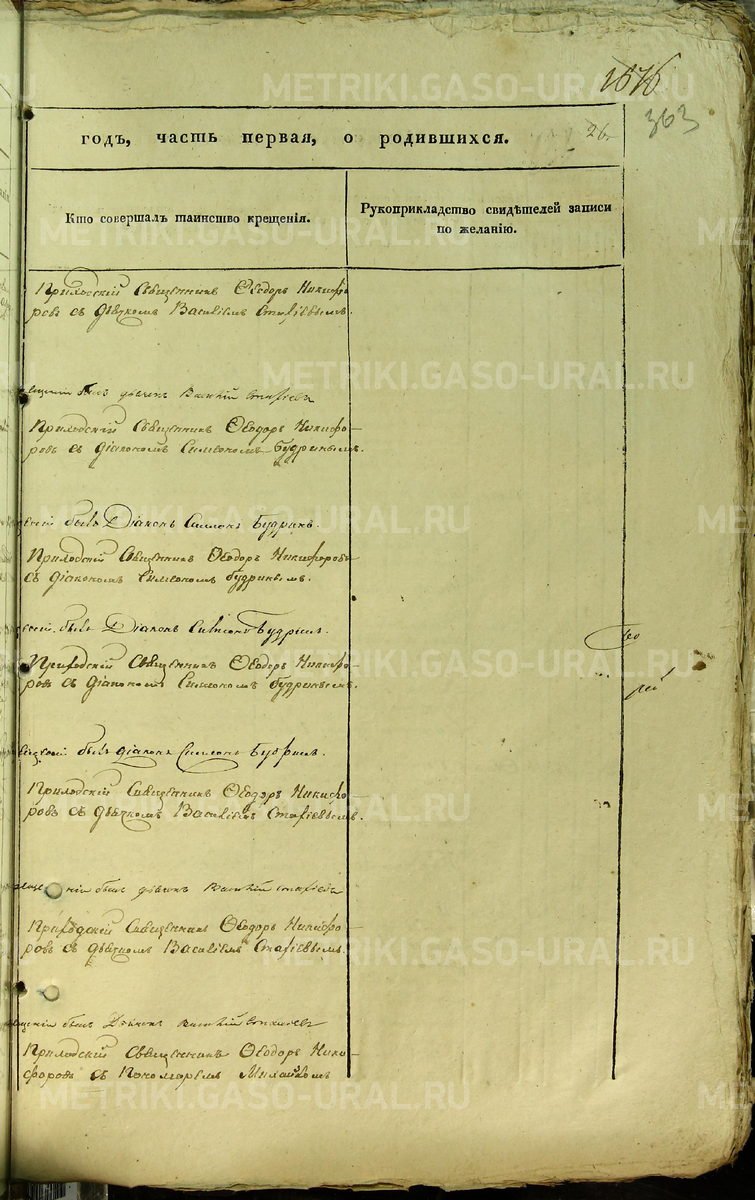 1676
METRIKI.GASO-URAL.RU
363
годъ, часть первая, о родившихся.
26.
Кто совершалъ таинство крещенія.
Рукоприкладство свидѣтелей записи
по желанію.
Приходскій Священникъ Ѳеодоръ Никифо
ровъ съ дьячкомъ Василіемъ Стафіевымъ.
METRIKI.GASO-URAL.RU
былъ дьячекъ Василій Стафіевъ
Приходскій Священникъ Ѳеодоръ Никифо-
ровъ съ діакономъ Симеономъ Будринымъ.
METRIKI.GASO-URAL.RU
былъ Діаконъ Симеонъ Будринъ.
Приходскій Священникъ Ѳеодоръ Никифоровъ
съ діакономъ Симеономъ Будринымъ.
былъ Діаконъ Симеонъ Будринъ.
Приходскій Священникъ Ѳеодоръ Никифо-
ровъ съ діакономъ Симеономъ Будринымъ.
METRIKI.GASO-URAL.RU
былъ діаконъ Симеонъ Будринъ.
Приходскій Священникъ Ѳеодоръ Никифо
ровъ съ дьячкомъ Василіемъ Стафіевымъ.
METRIKI.GASO-URAL.RU
былъ дьячекъ Василій Стафіевъ
Приходскій Священникъ Ѳеодоръ Никифо
ровъ съ дьячкомъ Василіемъ Стафіевымъ.
METRIKI.GASO-URAL.RU
былъ Дьячекъ Василій Стафіевъ
Приходскій Священникъ Ѳеодоръ Ники-
форовъ съ Пономаремъ
METRIKI.GASO-URAL.RU